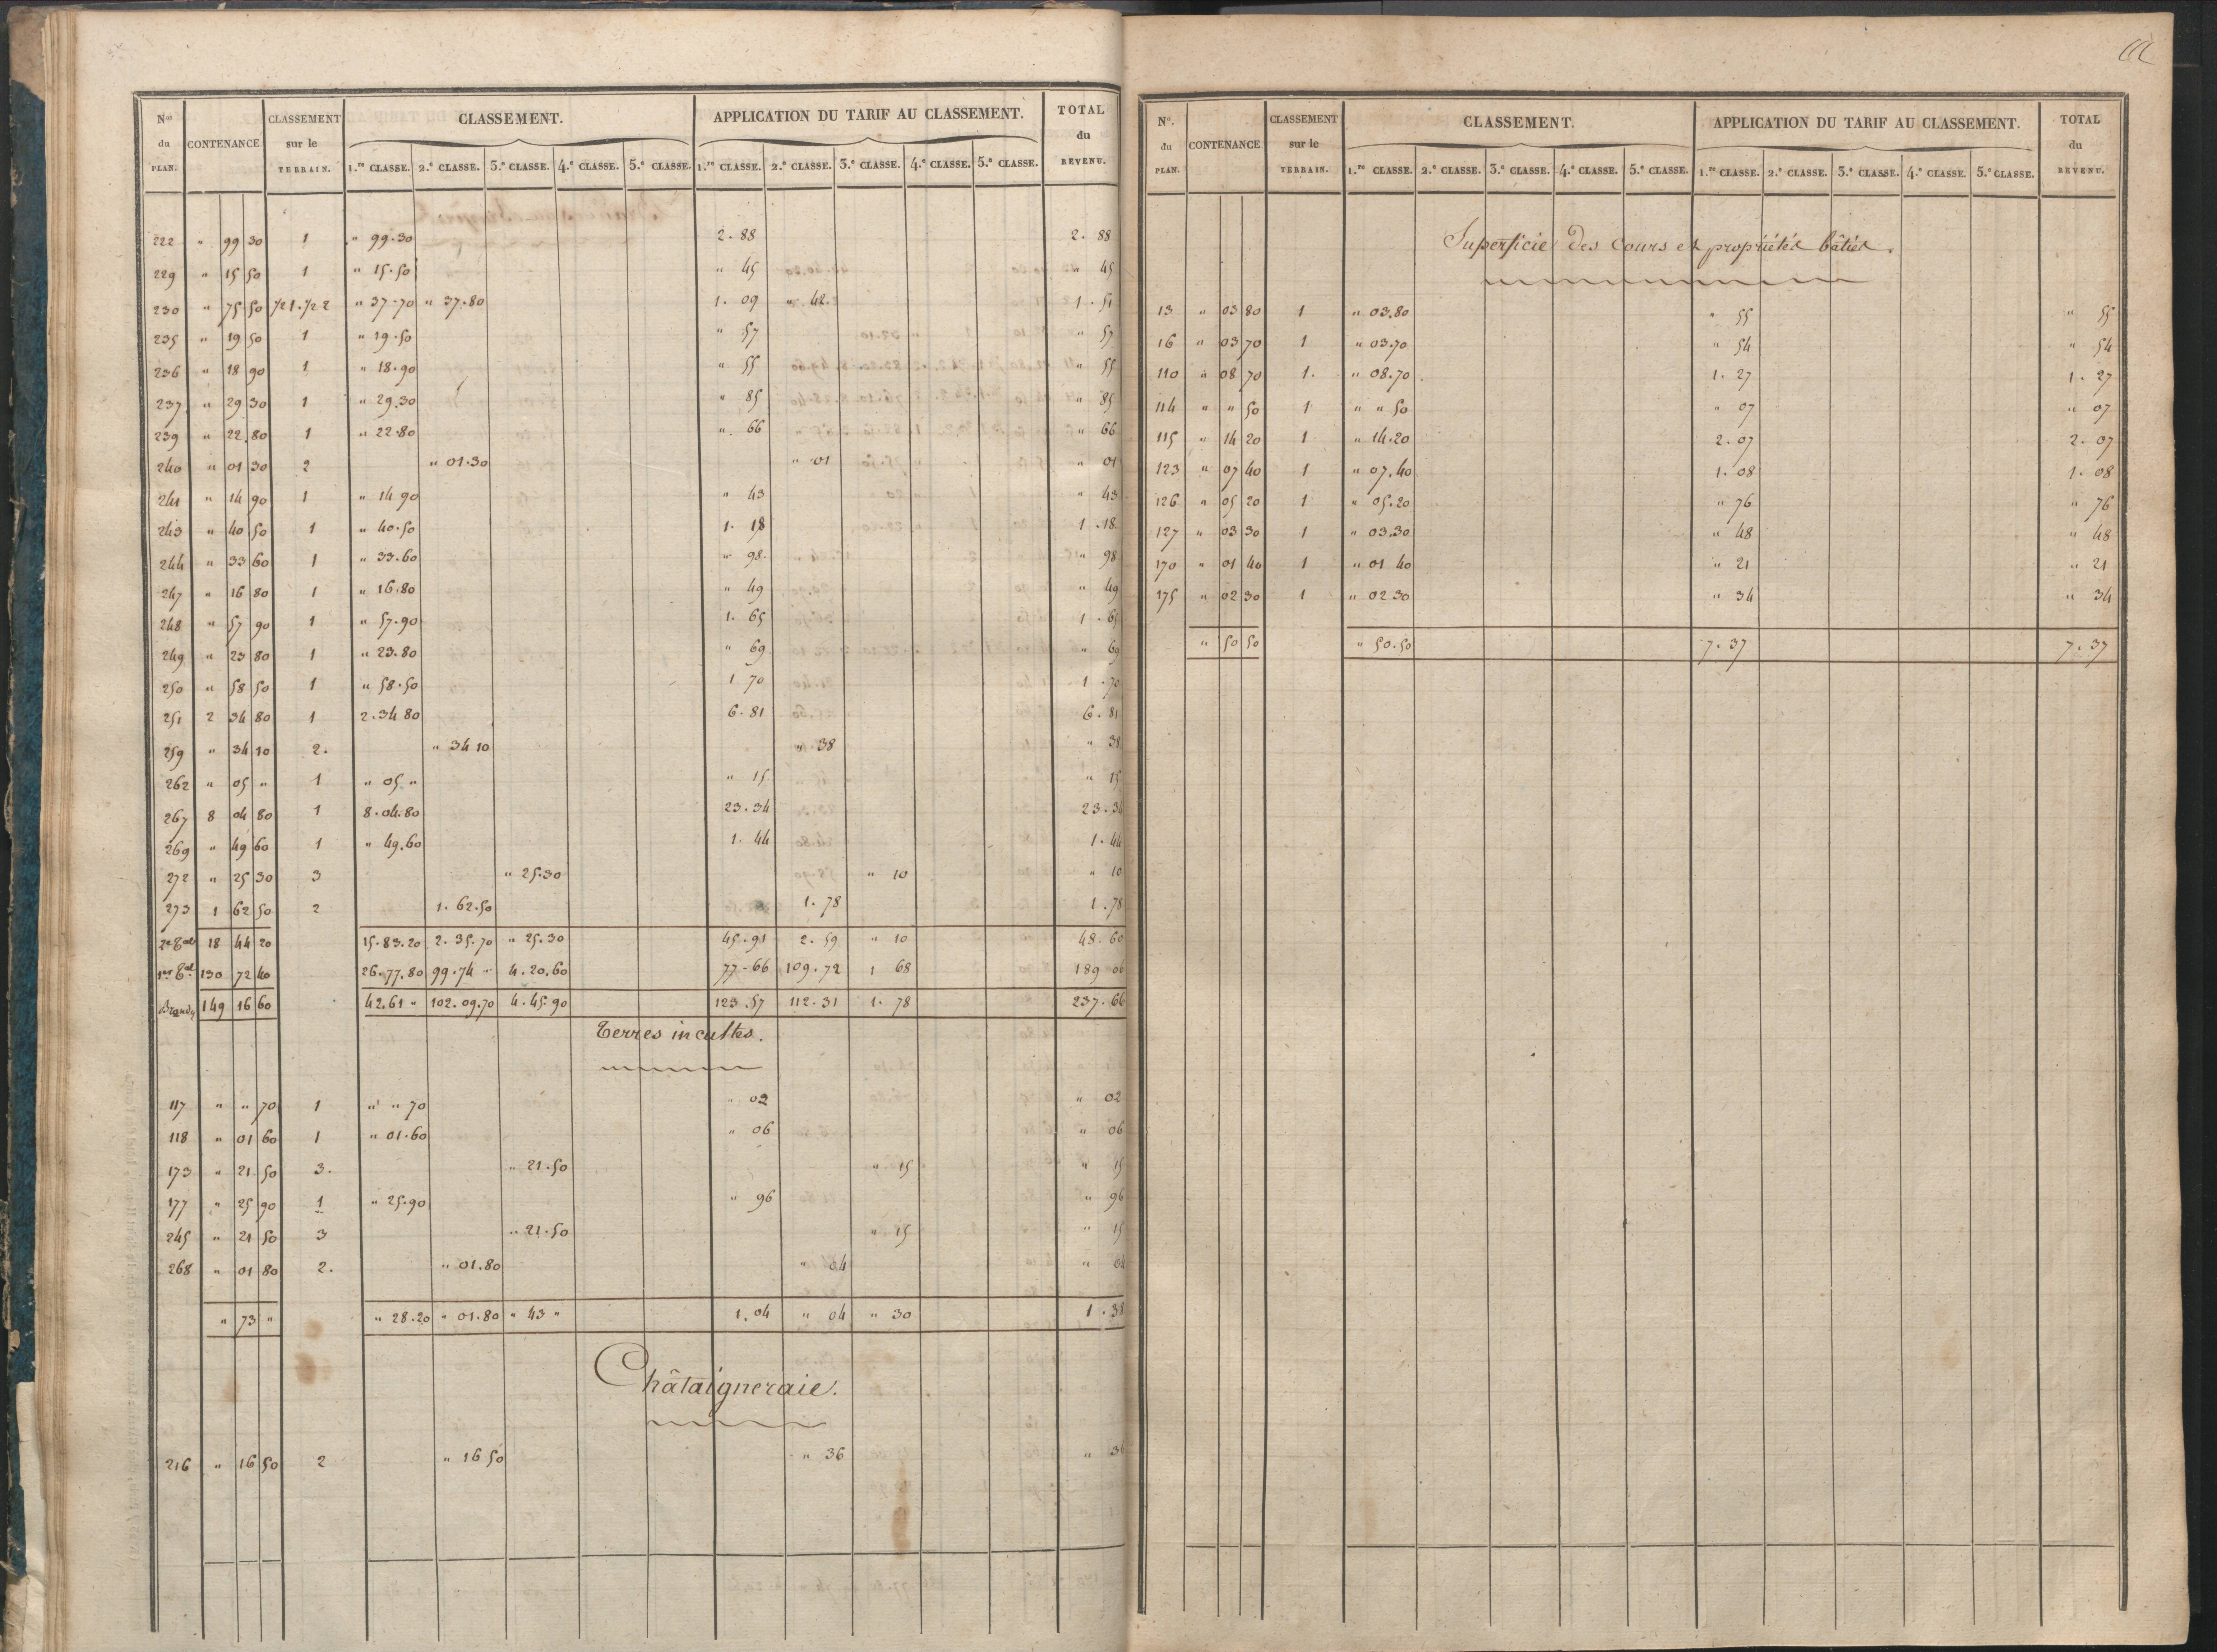 Nos du PLAN. CONTENANCE. CLASSEMENT sur le TERRAIN. CLASSEMENT. APPLICATION DU TARIF AU CLASSEMENT. TOTAL du REVENU.
1.re CLASSE. 2.e CLASSE. 3.e CLASSE. 4.e CLASSE. 5.e CLASSE. 1.re CLASSE. 2.e CLASSE. 3.e CLASSE. 4.e CLASSE. 5.e CLASSE.
222 " 99 30 1 " 99.30 2.88 2.88
229 " 15 50 1 " 15.50 " 45 " 45
230 " 75 50 1/2 1. 1/2 2 " 37.70 " 37.80 1.09 " 42 1.51
235 " 19 50 1 " 19.50 " 57 " 57
236 " 18 90 1 " 18.90 " 55 " 55
237 " 29 30 1 " 29.30 " 85 " 85
239 " 22 80 1 " 22.80 " 66 " 66
240 " 01 30 2 " 01.30 " 01 " 01
241 " 14 90 1 " 14 90 " 43 " 43
243 " 40 50 1 " 40.50 1.18 1.18
244 " 33 60 1 " 33.60 " 98 " 98
247 " 16 80 1 " 16.80 " 49 " 49
248 " 57 90 1 " 57.90 1.65 1.65
249 " 23 80 1 " 23.80 " 69 " 69
250 " 58 50 1 " 58.50 1 70 1.70
251 2 34 80 1 2.34 80 6.81 6.81
259 " 34 10 2. " 34 10 " 38 " 38
262 " 05 " 1 " 05 " " 15 " 15
267 8 04 80 1 8.04.80 23.34 23.34
269 " 49 60 1 " 49.60 1.44 1.44
272 " 25 30 3 " 25.30 " 10 " 10
273 1 62 50 2 1.62.50 1.78 1.78
2e Tal 18 44 20 15.83.20 2.35.70 " 25.30 45.91 2.59 " 10 48.60
1er Tal 130 72 40 26.77.80 99.74 " 4.20.60 77.66 109.72 1 68 189 06
149 16 60 42.61 " 102.09.70 4.45.90 123.57 112.31 1.78 237.66
Terres incultes.
117 " " 70 1 " " 70 " 02 " 02
118 " 01 60 1 " 01.60 " 06 " 06
173 " 21 50 3. " 21.50 " 15 " 15
177 " 25 90 1 " 25.90 " 96 " 96
245 " 21 50 3 " 21.50 " 15 " 15
268 " 01 80 2. " 01.80 " 04 " 04
" 73 " " 28.20 " 01.80 " 43 " 1.04 " 04 " 30 1.38
Châtaigneraie.
216 " 16 50 2 " 16 50 " 36 " 36
N°. du PLAN. CONTENANCE. CLASSEMENT sur le TERRAIN. CLASSEMENT. APPLICATION DU TARIF AU CLASSEMENT. TOTAL du REVENU.
1.re CLASSE. 2.e CLASSE. 3.e CLASSE. 4.e CLASSE. 5.e CLASSE. 1.re CLASSE. 2.e CLASSE. 3.e CLASSE. 4.e CLASSE. 5.e CLASSE.
Superficie des cours et propriétés bâties.
13 " 03 80 1 " 03.80 " 55 " 55
16 " 03 70 1 " 03.70 " 54 " 54
110 " 08 70 1. " 08.70 1.27 1.27
114 " " 50 1 " " 50 " 07 " 07
115 " 14 20 1 " 14.20 2.07 2.07
123 " 07 40 1 " 07.40 1.08 1.08
126 " 05 20 1 " 05.20 " 76 " 76
127 " 03 30 1 " 03.30 " 48 " 48
170 " 01 40 1 " 01 40 " 21 " 21
175 " 02 30 1 " 02 30 " 34 " 34
" 50 50 " 50.50 7.37 7.37